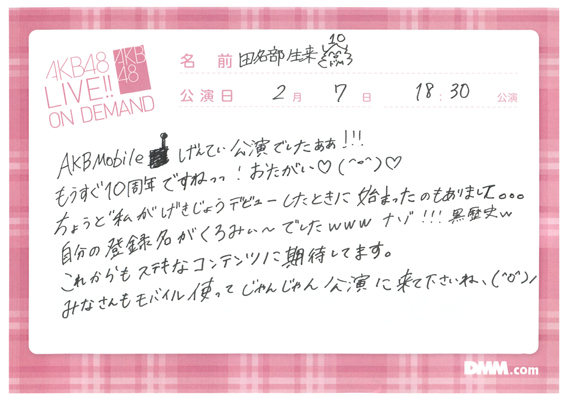 AKB48
LIVE!!
ON DEMAND
AKB
48
名前 田名部生来 10
公演日 2月 7日 18:30 公演
AKBMobile げんてい公演でしたぁぁ!!!
もうすぐ10周年ですねっっ!おたがい♡(^o^)♡
ちょうど私がげきじょうデビューしたときに始まったのもありまして。。。
自分の登録名がくろみぃ〜でしたwww ナゾ!!!黒歴史w
これからもステキなコンテンツに期待してます。
みなさんもモバイル使ってじゃんじゃん公演に来て下さいね、(^o^)ノ
DMM.com